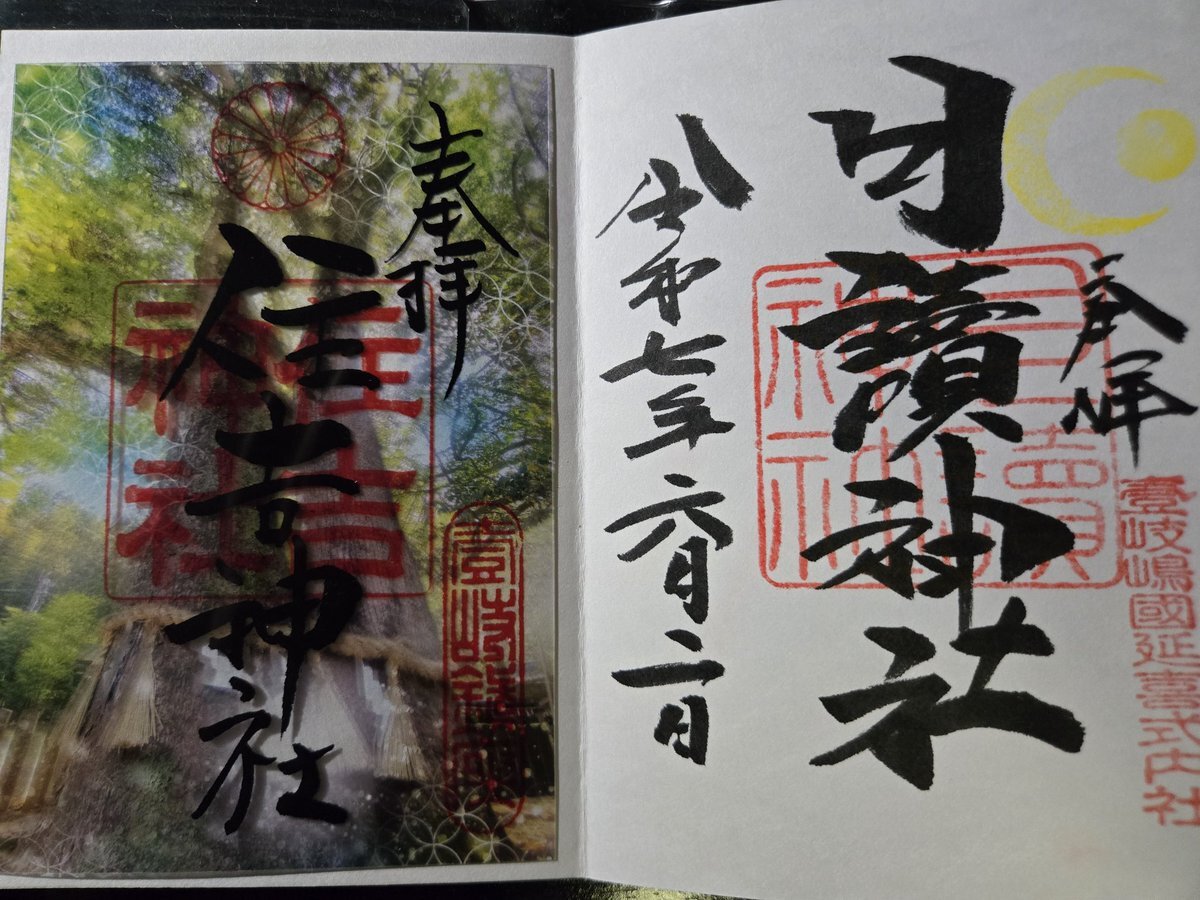 奉拝
壹岐嶋國延喜式内社
月讀神社
月讀神社
令和七年六月二日
奉拝
住吉神社
住吉神社
壹岐